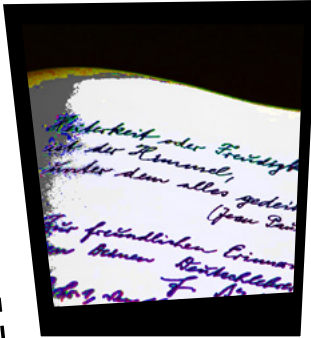 Heiterkeit oder Freudigk
ist der Himmel,
unter dem alles gedei
(Jean Pau
Zur freundlichen Erinner
an Deinen Deutschlehre